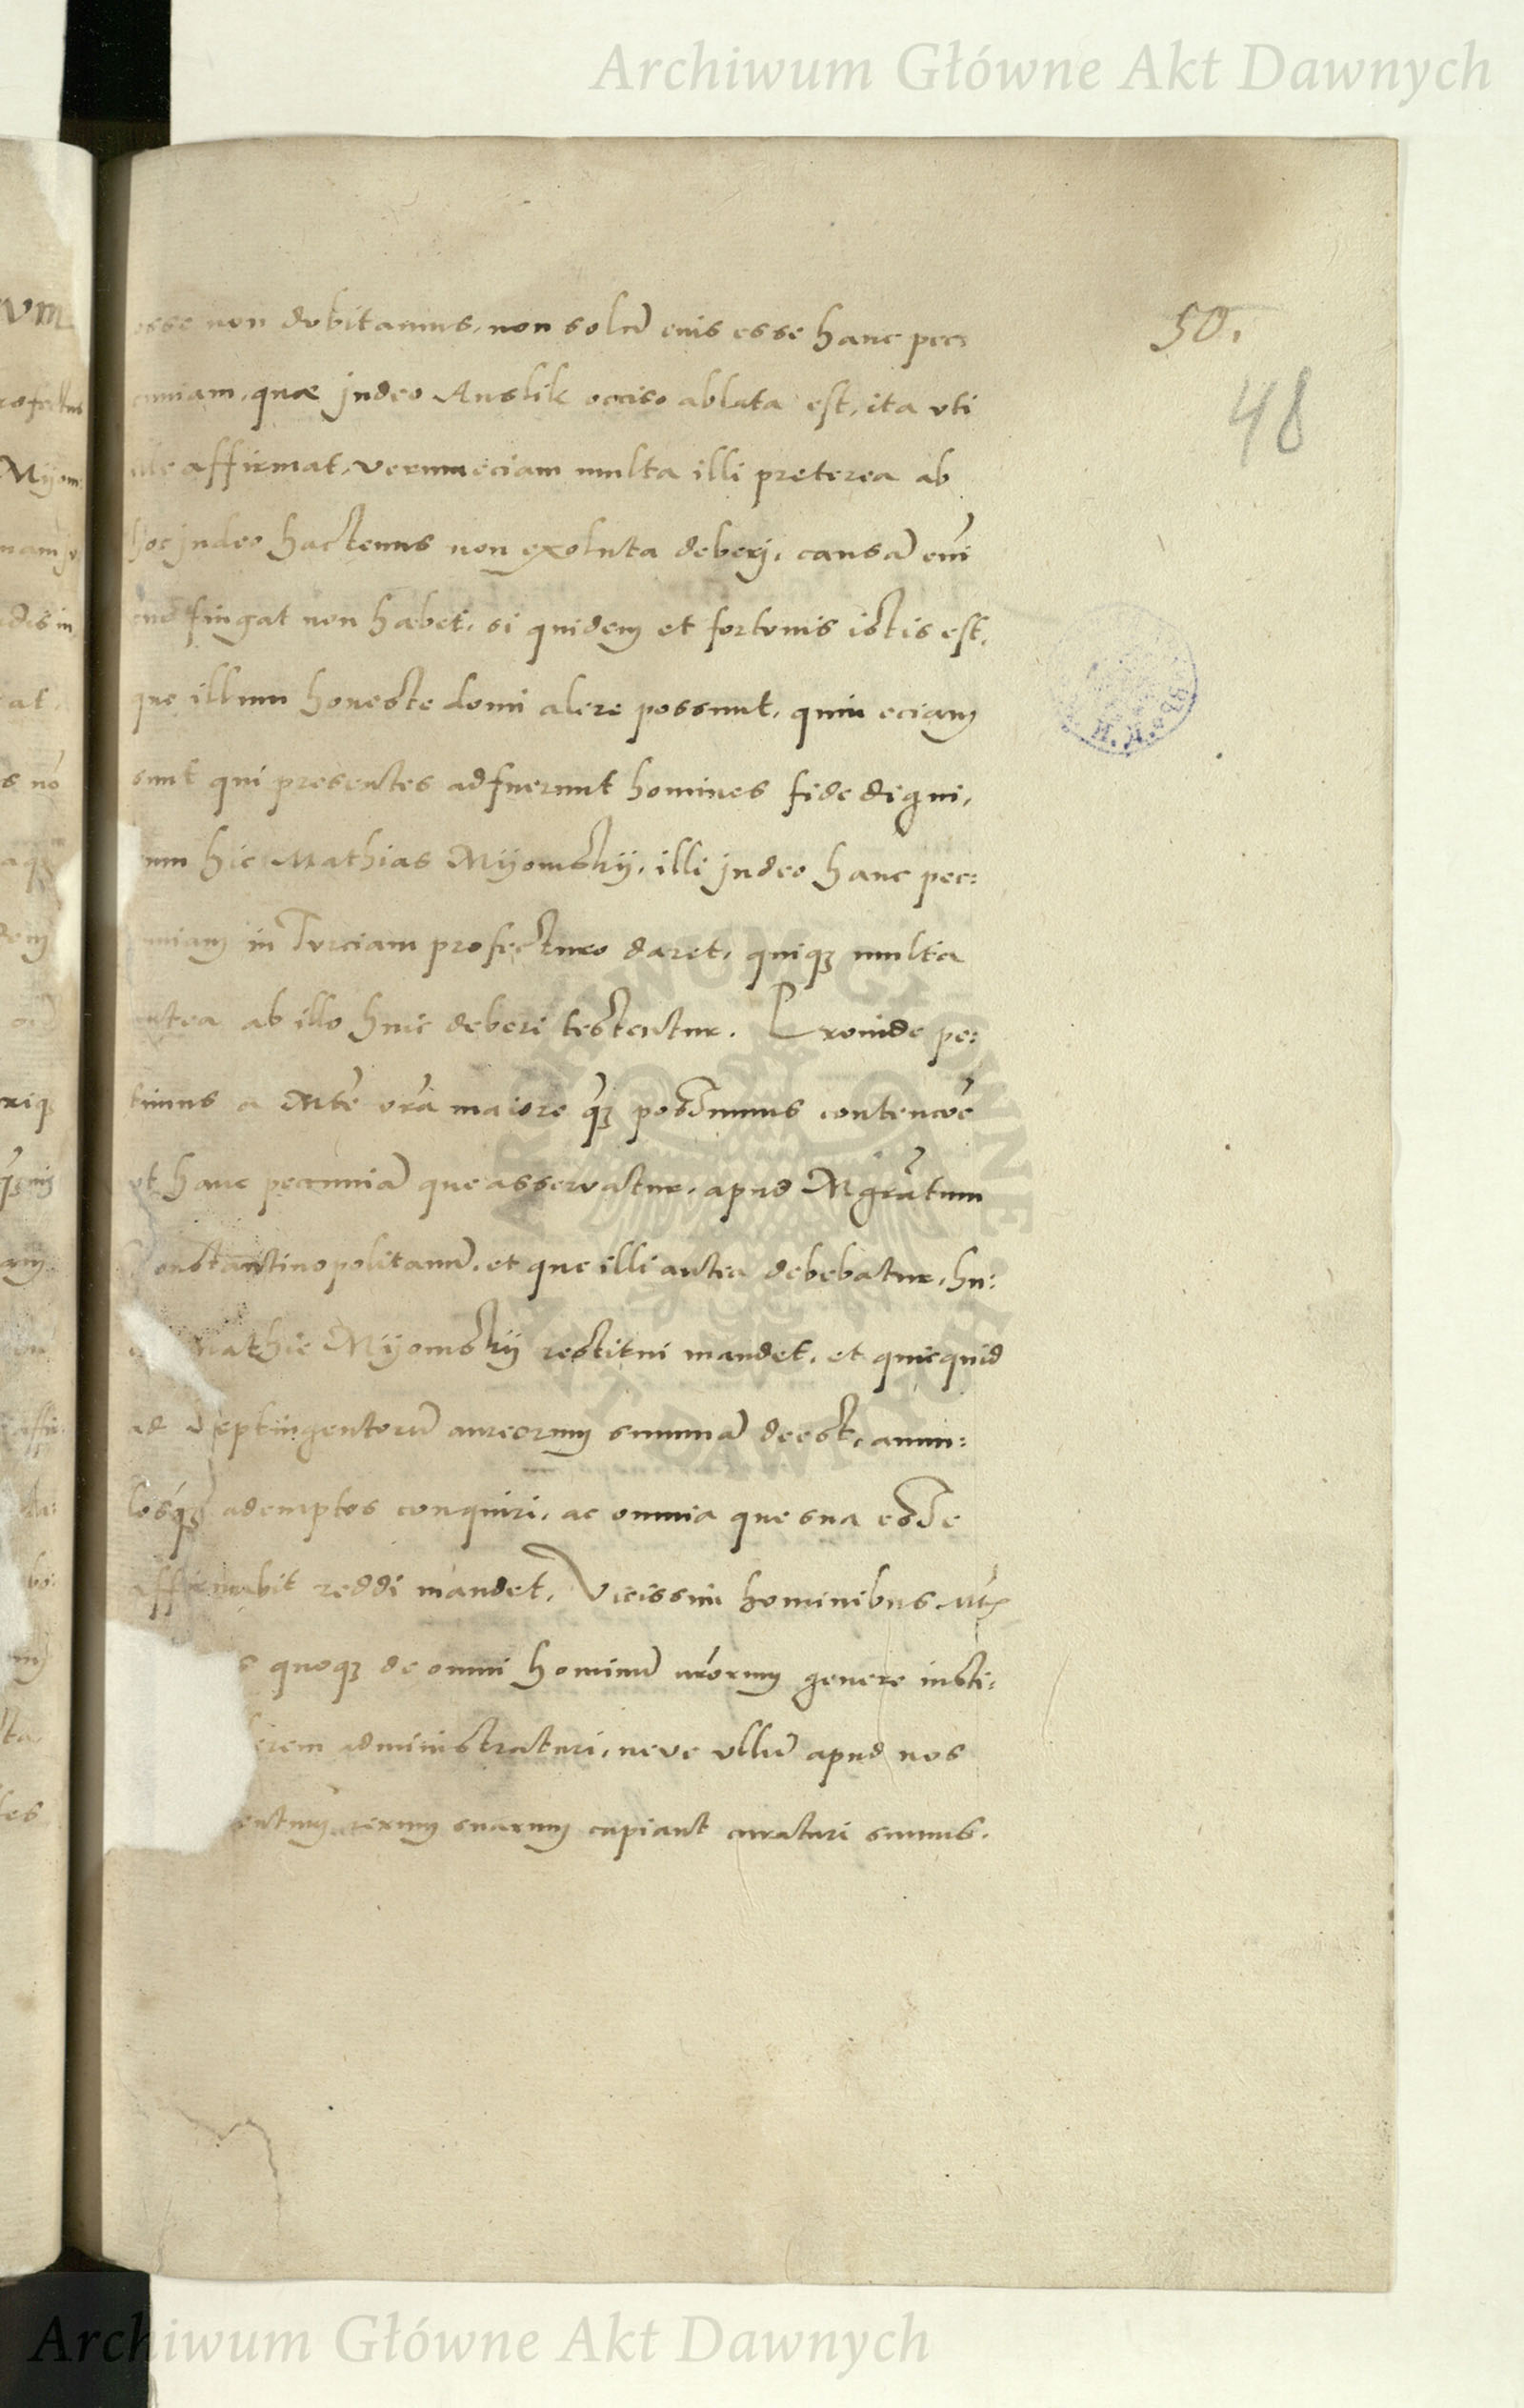 Archiwum Główne Akt Dawnych
50.
48
esse non dubitamus, non solũ eius esse hanc pec:
cuniam, quæ judeo Anslik occiso ablata est, ita vti
ille affirmat, verum eciam multa illi preterea ab
hoc judeo hactenus non exoluta deberj, causã em̃
cur fingat non habet, si quidem et fortunis istis est,
que illum honeste domi alere possunt, quin eciam
sunt qui presentes adfuerunt homines fide digni,
cum hic Mathias Myomsky, illi judeo hanc pec:
uniam in Turciam profecturo daret, quiqȝ multa
antea ab illo huic deberi testentur. Proinde pe:
timus a Mte vr̃a maiore qȝ possumus contencõe
vt hanc pecuniã que asseruatur, apud Mgrãtum
Constantinopolitanũ, et que illi antea debebatur, hu:
Mathie Myomsky restitui mandet, et quicquid
ad septingentorũ aureorum summã deest, annu:
losqȝ ademptos conquiri, ac omnia que sua esse
affirmabit reddi mandet, Vicissim hominibus Mtis
s quoqȝ de omni hominũ vr̃orum genere insti:
erem administraturi, neve vllũ apud nos
entum rerum suarum capiant curaturi sumus.
ARCHIWUM GŁÓWNE AKT DAWNYCH
Archiwum Główne Akt Dawnych